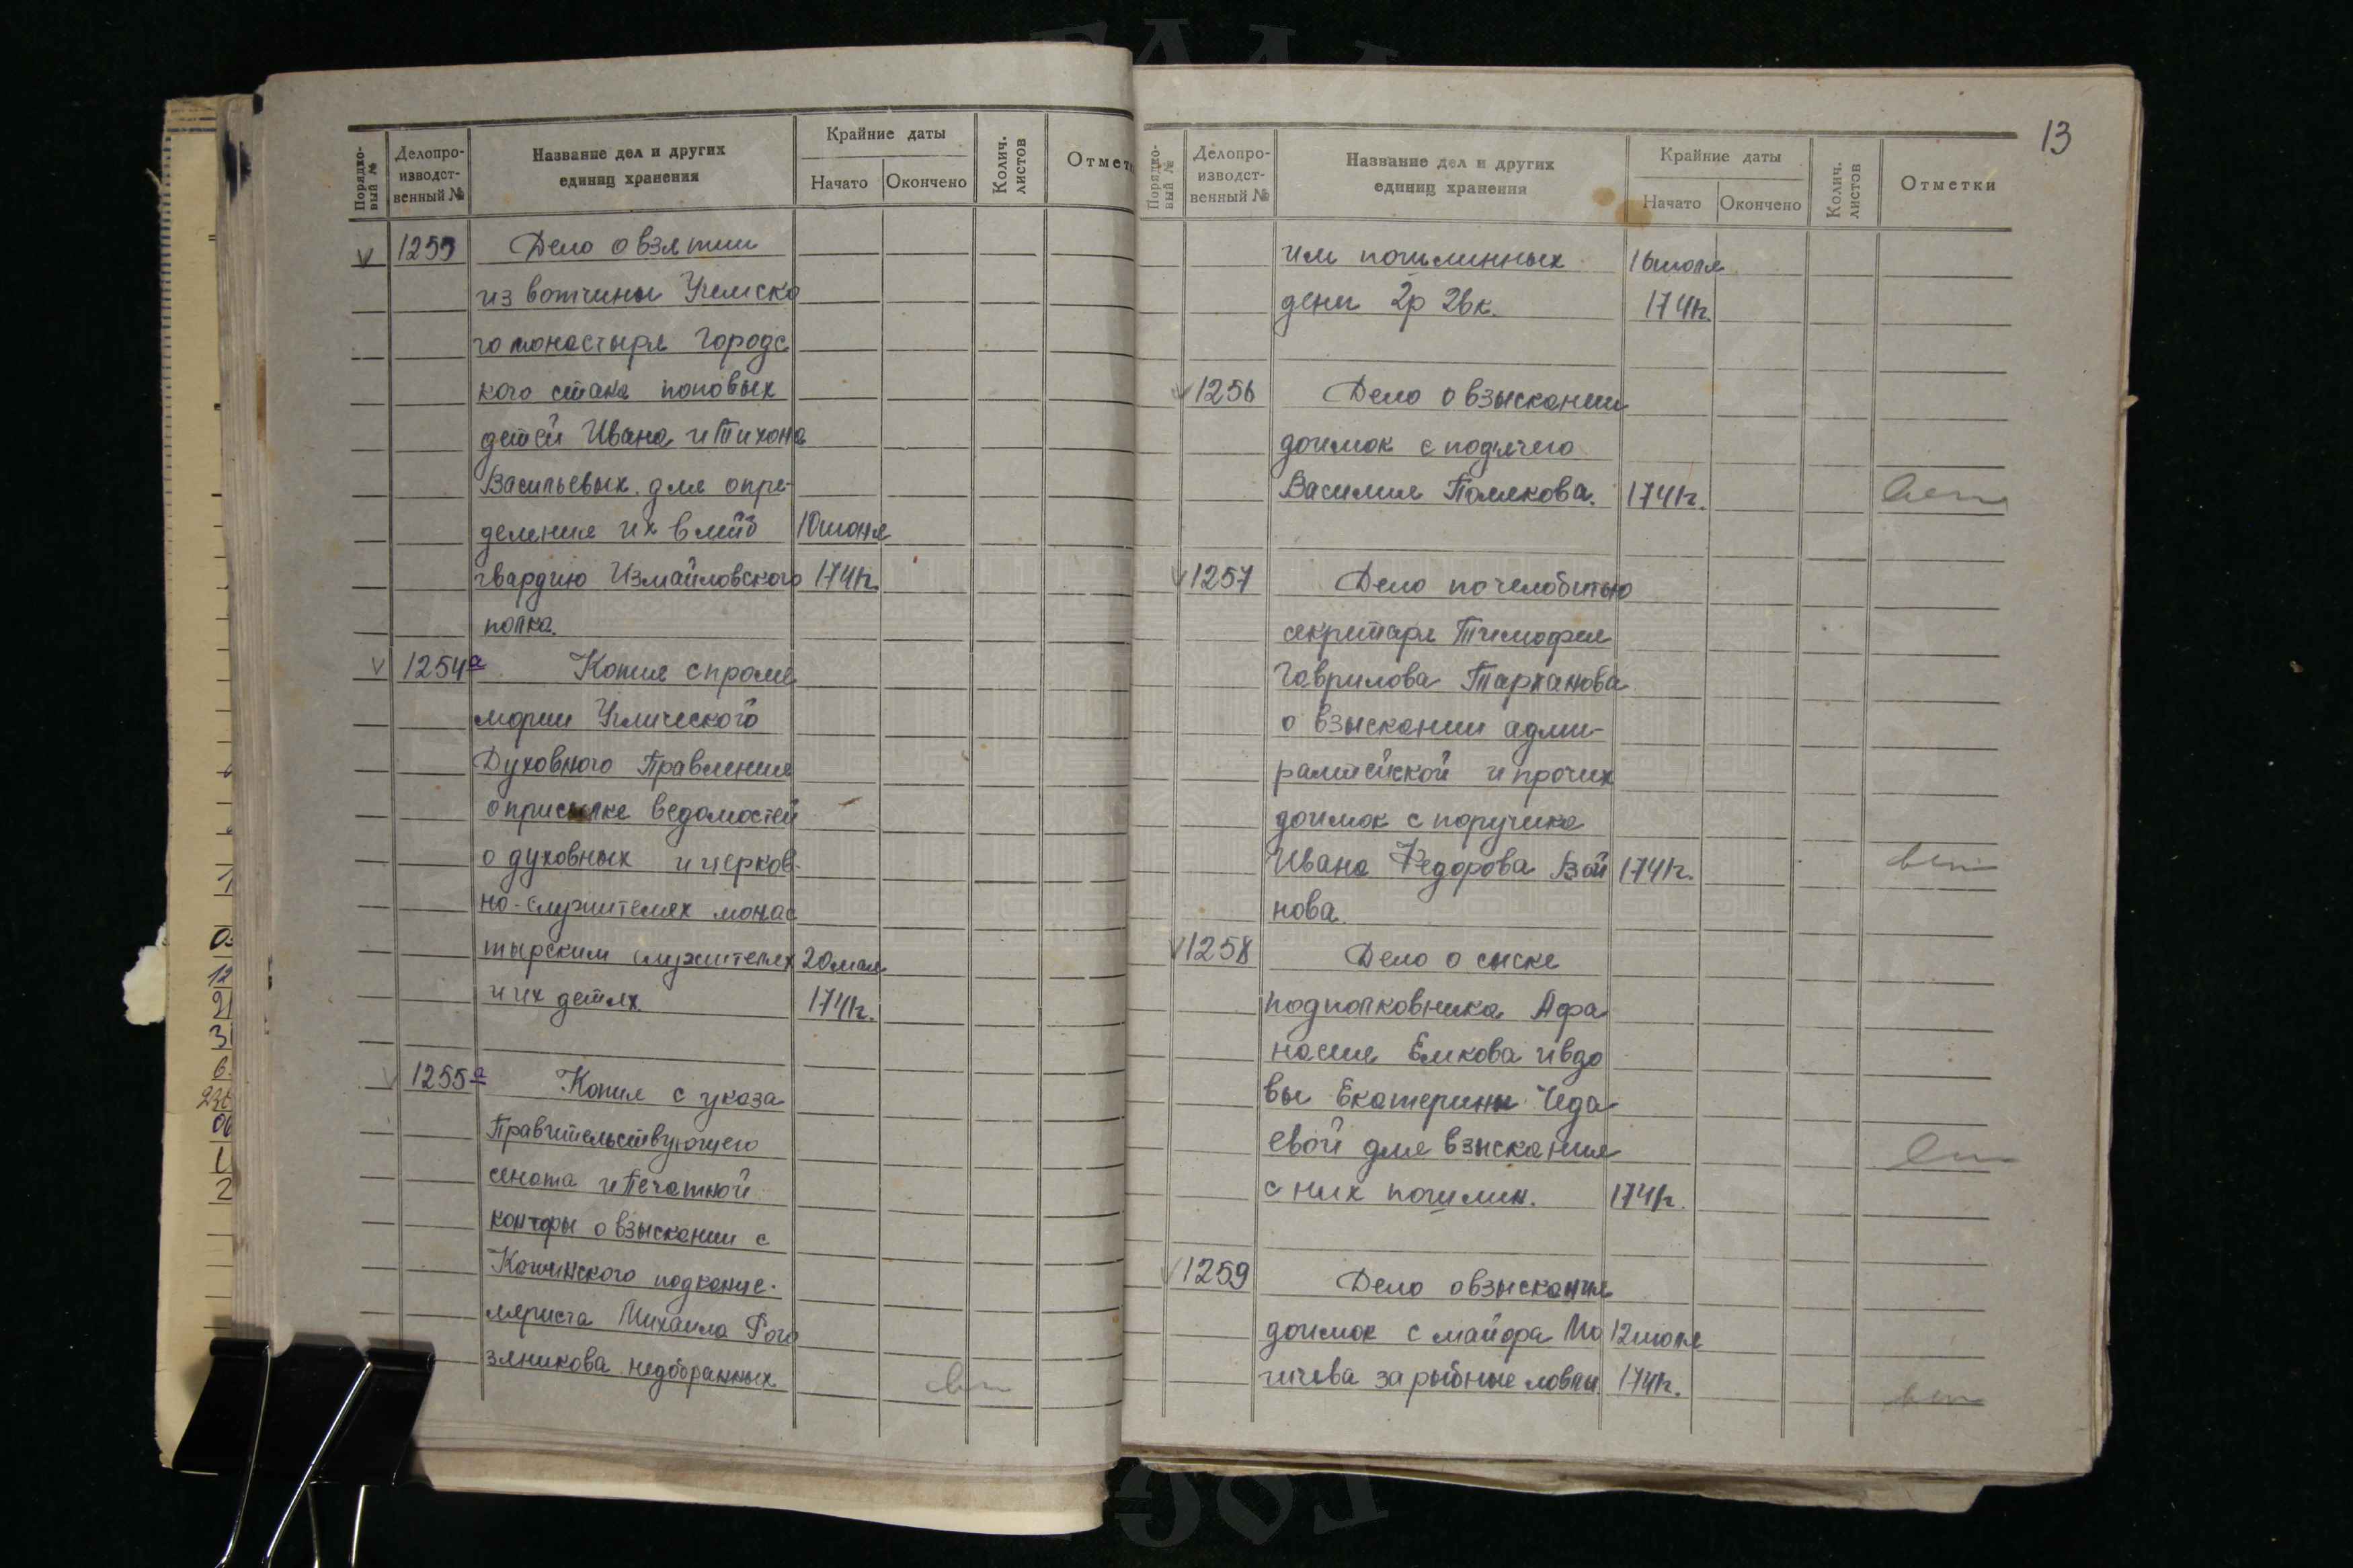 Порядко-
вый №
Делопро-
изводст-
венный №
Название дел и других
единиц хранения
Крайние даты
Начато
Окончено
Колич.
листов
Отметк
V 1253 Дело о взятии
из вотчины Учемско
го монастыря Городс
кого стана поповых
детей Ивана и Тихона
Васильевых для опре-
деления их в лейб 10 июня
гвардию Измайловского 1741г.
полка.
V 1254а Копия с проме
мории Углического
Духовного Правления
о присылке ведомостей
о духовных и церков-
но-служителях монас
тырским служителях 20 мая
и их детях. 1741г.
V 1255а Копия с указа
Правительствующего
сената и Печатной
конторы о взыскании с
Кашинского подканце-
ляриста Михаила Рого
зянникова недобранных
13
Порядко-
вый №
Делопро-
изводст-
венный №
Название дел и других
единиц хранения
Крайние даты
Начато
Окончено
Колич.
листов
Отметки
им пошлинных 16 июля
денег 2р 26к. 1741г.
V 1256 Дело о взыскании
доимок с подячего
Василия Полякова. 1741г.
V 1257 Дело по челобитью
секретаря Тимофея
Гаврилова Тарханова
о взыскании адми-
ралтейской и прочих
доимок с поручика
Ивана Федорова Вои 1741г.
нова.
V 1258 Дело о сыске
подполковника Афа
насия Елкова и вдо
вы Екатерины Чеда
евой для взыскания
с них пошлин. 1741г.
V 1259 Дело о взыскания
доимок с майора Мо 12 июля
гичева за рыбные ловли. 1741г.